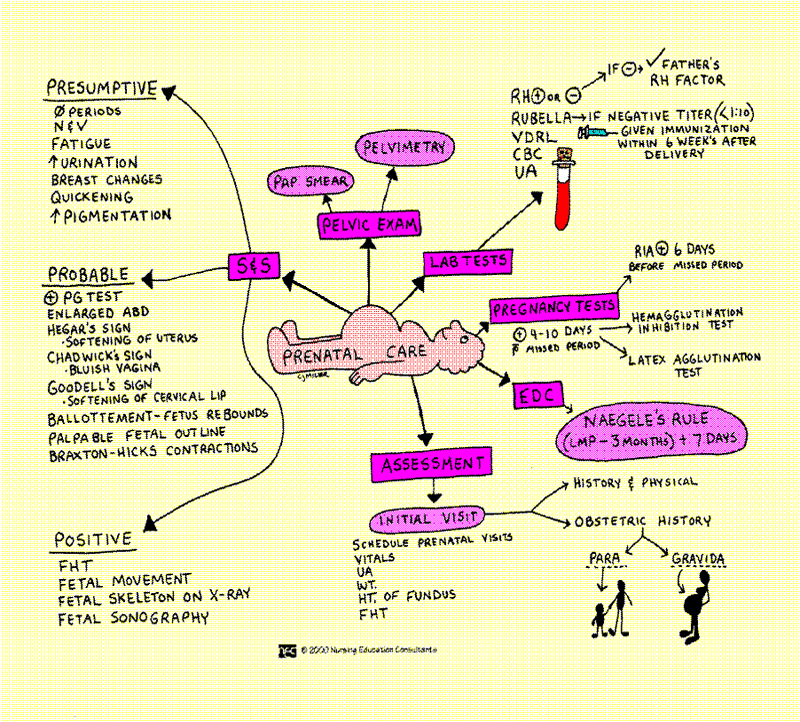 PRESUMPTIVE
Ø PERIODS
N&V
FATIGUE
↑URINATION
BREAST CHANGES
QUICKENING
↑PIGMENTATION
PROBABLE
⊕ PG TEST
ENLARGED ABD
HEGAR'S SIGN
•SOFTENING OF UTERUS
CHADWICK'S SIGN
•BLUISH VAGINA
GOODELL'S SIGN
•SOFTENING OF CERVICAL LIP
BALLOTTEMENT-FETUS REBOUNDS
PALPABLE FETAL OUTLINE
BRAXTON-HICKS CONTRACTIONS
POSITIVE
FHT
FETAL MOVEMENT
FETAL SKELETON ON X-RAY
FETAL SONOGRAPHY
S&S
PAP SMEAR
PELVIMETRY
PELVIC EXAM
LAB TESTS
RH⊕ OR ⊖
IF ⊖→✓FATHER'S
RH FACTOR
RUBELLA→IF NEGATIVE TITER (<1:10)
GIVEN IMMUNIZATION
WITHIN 6 WEEK'S AFTER
DELIVERY
VDRL
CBC
UA
PREGNANCY TESTS
RIA⊕ 6 DAYS
BEFORE MISSED PERIOD
⊕ 4-10 DAYS
p̄ MISSED PERIOD
HEMAGGLUTINATION
INHIBITION TEST
LATEX AGGLUTINATION
TEST
PRENATAL CARE
CJMILLER
EDC
NAEGELE'S RULE
(LMP-3 MONTHS) + 7 DAYS
ASSESSMENT
INITIAL VISIT
SCHEDULE PRENATAL VISITS
VITALS
UA
WT.
HT. OF FUNDUS
FHT
HISTORY & PHYSICAL
OBSTETRIC HISTORY
PARA
GRAVIDA
NEC © 2000 Nursing Education Consultants